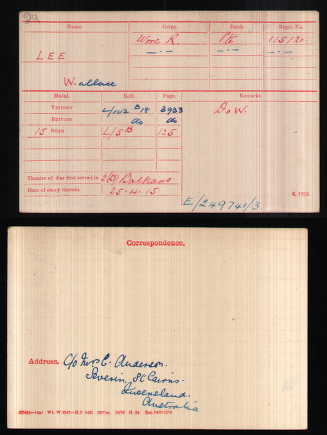 Name. Corps. Rank. Regtl. No.
LEE Worc R. Pte 11512
Wallace
Medal. Roll. Page. Remarks.
Victory L/102 B18 3933 D.o.W.
British do do
15 Star L/5 B 125
Theatre of War first served in (2B) Balkans
Date of entry therein 25-4-15
E/24974/3
K. 1380.
Correspondence.
Address. C/o Mrs E. Anderson.
Severin St Cairns.
Queensland.
Australia